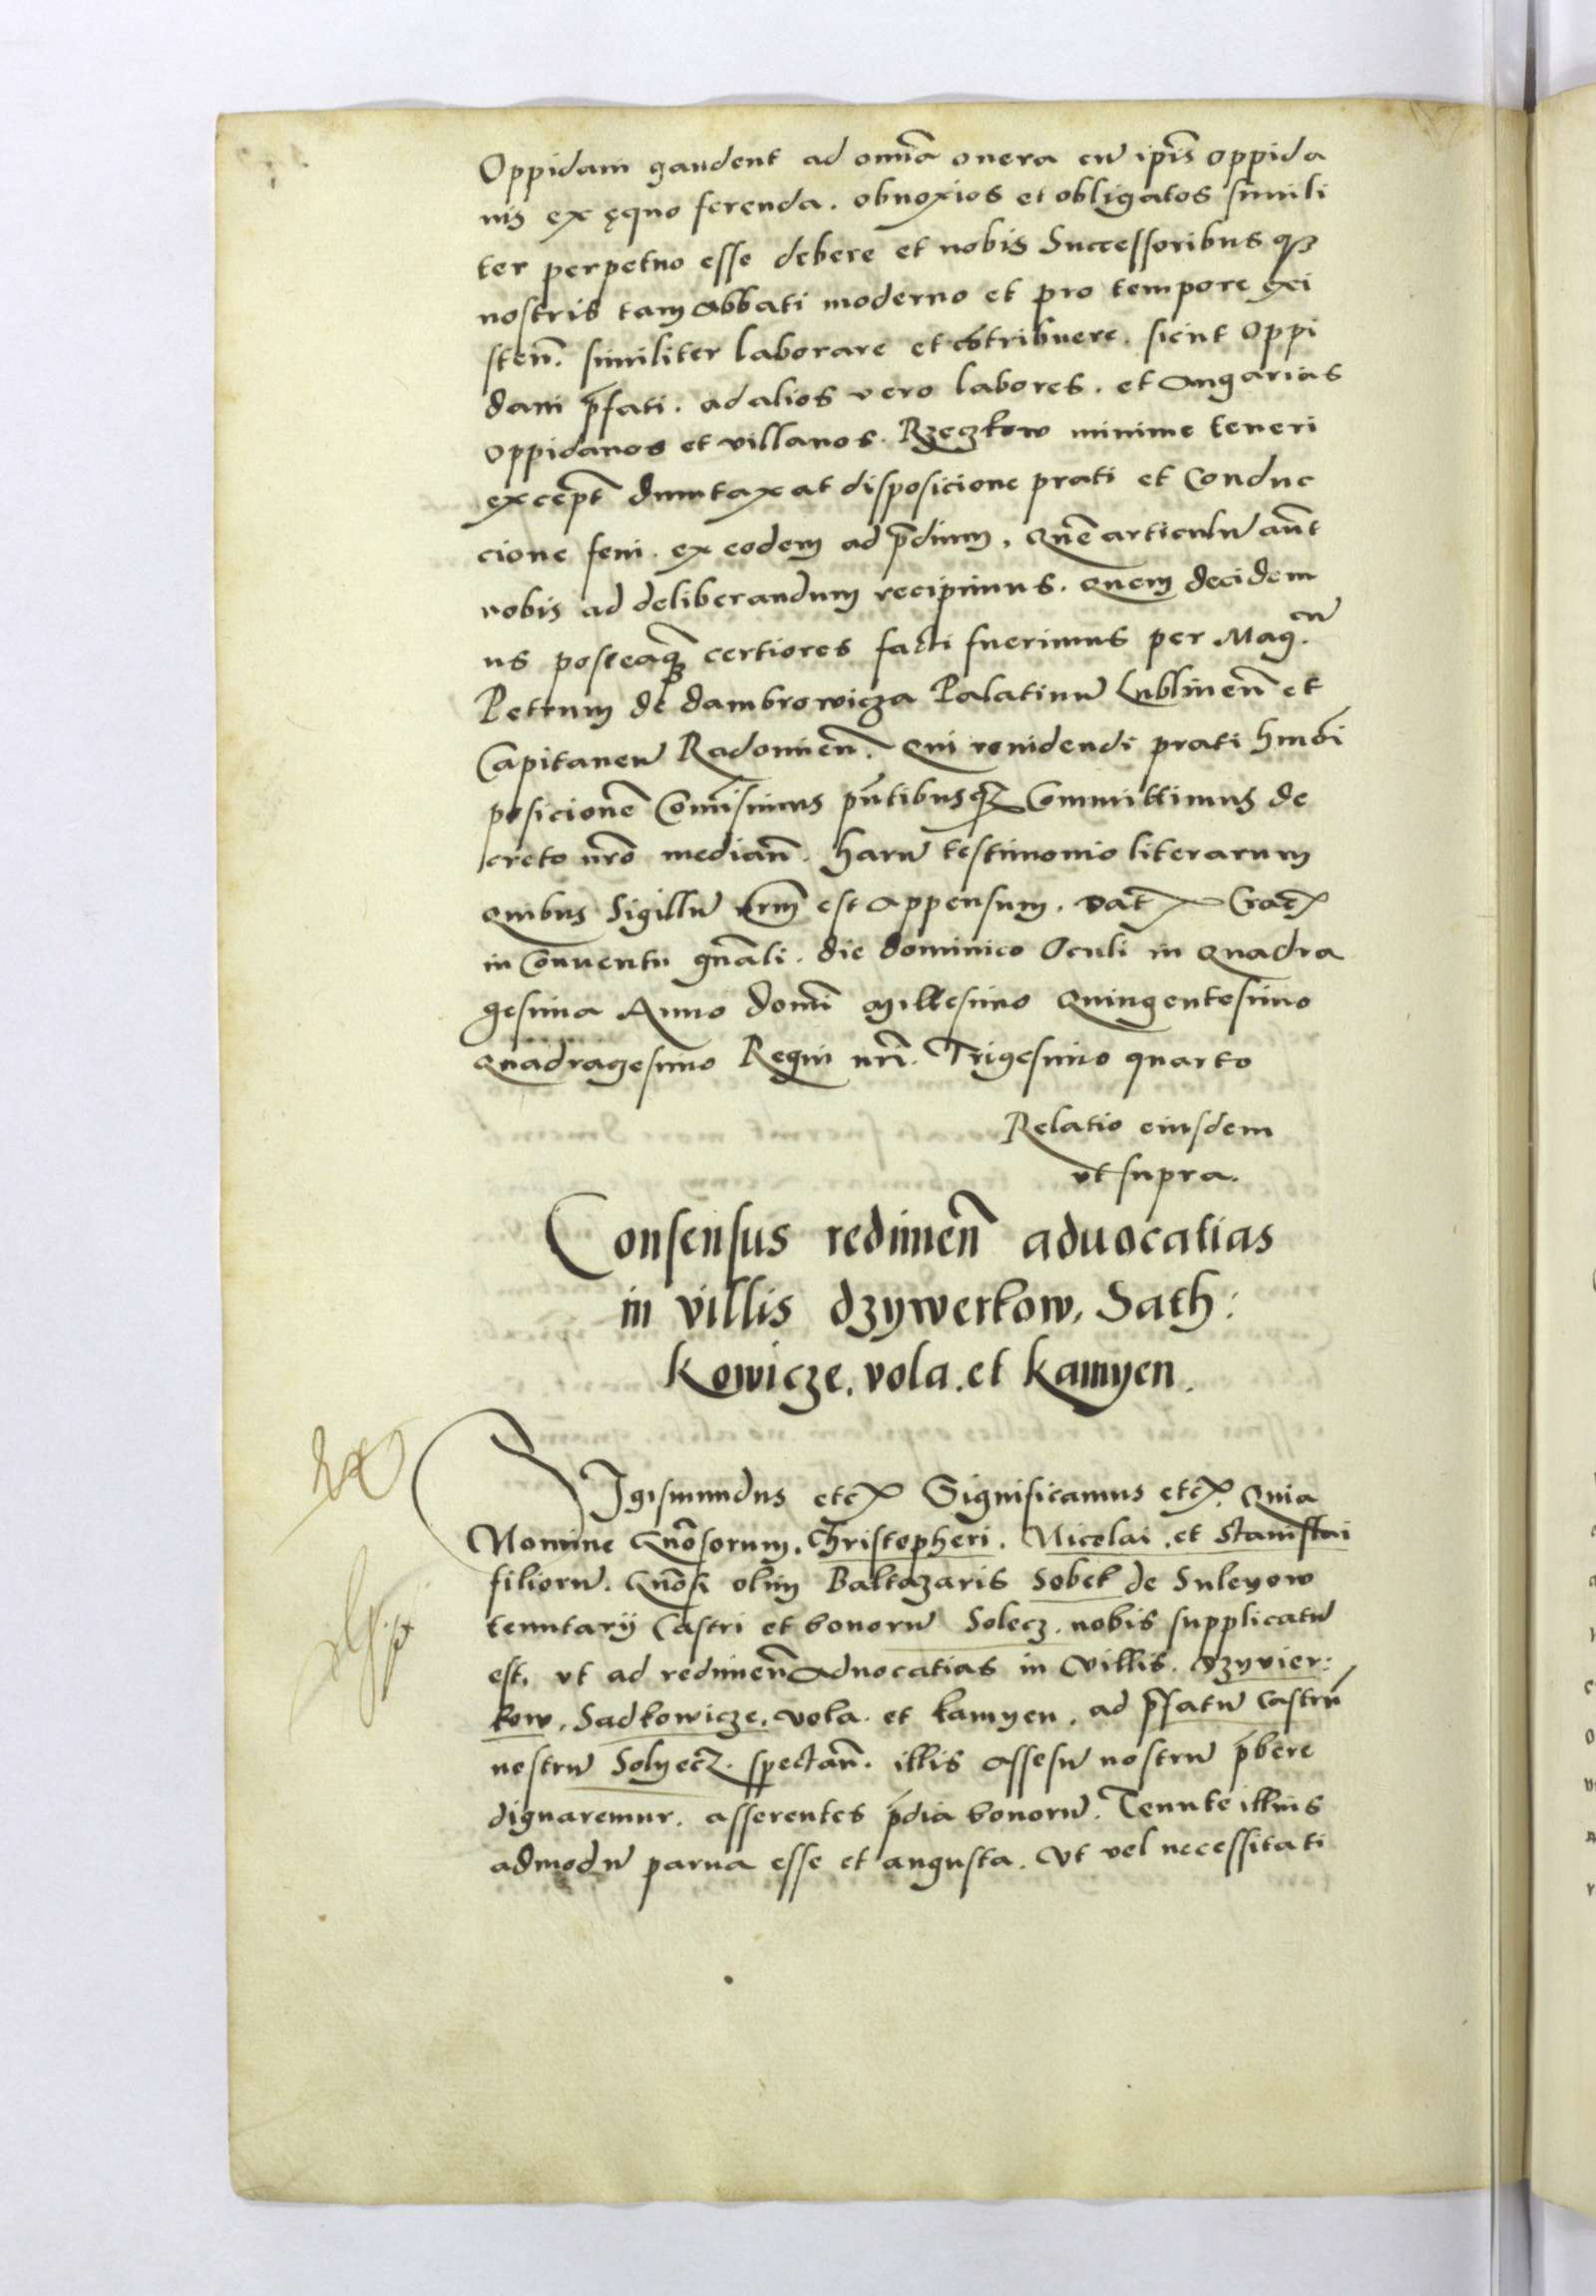 Oppidani gaudent ad omīa onera cū ip̄is oppida
nis ex ęquo ferenda. obnoxios et obligatos simili
ter perpetuo esse debere et nobis Successoribus qꝫ
nostris tam abbati moderno et pro tempore exi
steñ. similiter laborare et cōtribuere. sicut Oppi
dani p̄fati. ad alios vero labores. et angarias
oppidanos et villanos. Rzeczkow minime teneri
except̄ dumtaxat disposicione prati et Conduc
cione feni. ex eodem ad p̄dium, Quē articulū aūt
nobis ad deliberandum recipimus. quem decidem
us posteaqꝫ certiores facti fuerimus per Mag.cū
Petrum de dambrowicza Palatinū Lublineñ et
Capitaneū Radomieñ. Qui reuidendi prati hmōi
posicionē Comīsimus pn̄tibusqꝫ Committimus de
creto nr̄o medianī. harū testimonio literarum
quibus Sigillū nr̄m est appensum. Dat̄ Crac̄
in Conuentu gn̄ali. die dominico Oculi in Quadra
gesima Anno domī millesimo Quingentesimo
quadragesimo Regni nr̄i. Trigesimo quarto
Relatio eiusdem
vt supra.
Consensus redimeñ aduocatias
in villis dzywerkow, Sath:
kowicze, vola. et kamyen.
Sigismundus etc̄ Significamus etc̄. Quia
Nomine Gn̄osorum. Christopheri. Nicolai. et Stanislai
filiorū. Gn̄osi olim Baltazaris Sobek de Suleyow
tenutarij Castri et bonorū Solecz. nobis supplicatū
est. vt ad redimeñ aduocatias in villis. Dzyvier:
kow, Sadkowicze, vola. et kamyen, ad p̄fatū castrū
nostrū Solyecz. spectañ. illis assesū nostrū p̄bere
dignaremur. asserentes p̄dia bonorū. Tenute illius
admodū parua esse et angusta. Vt vel necessitati